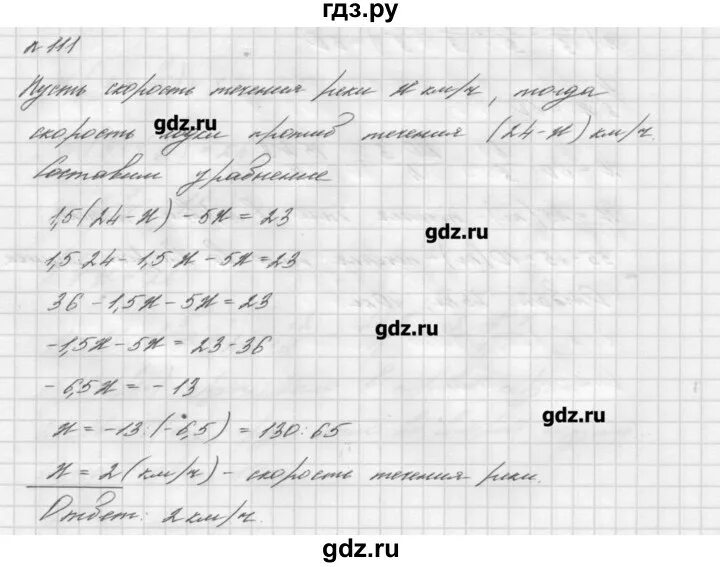 гдз.ру
№ 111
Пусть скорость течения реки x км/ч, тогда
скорость лодки против течения (24-x) км/ч.
gdz.ru
Составим уравнение
1,5(24-x) - 5x = 23
gdz.ru
1,5·24 - 1,5·x - 5x = 23
36 - 1,5x - 5x = 23
gdz.ru
-1,5x - 5x = 23-36
-6,5x = -13
gdz.ru
x = -13:(-6,5) = 130:65
x = 2 (км/ч) - скорость течения реки.
Ответ: 2 км/ч.
gdz.ru